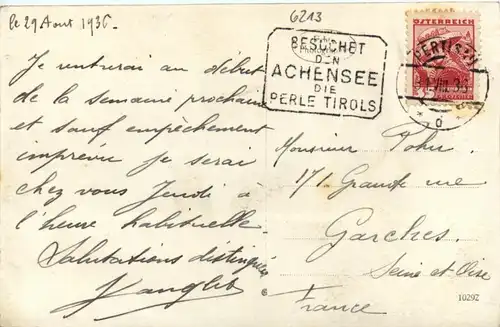 le 29 Aout 1936
6213
BESUCHET
DEN
ACHENSEE
DIE
PERLE TIROLS
ÖSTERREICH
PERTISAU
Je rentrerai au début
de la semaine prochaine
et sauf empêchement
imprévu je serai
chez vous Jeudi à
l'heure habituelle
Salutations distinguées
Monsieur
171 Grande rue
Garches
Seine et Oise
France
10292